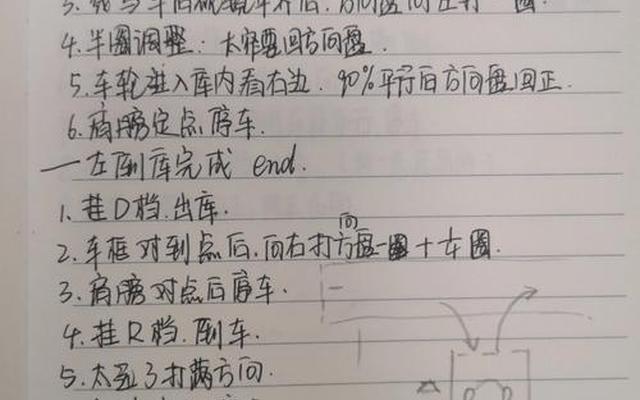 4.半圈调整:太窄要回方向盘.
5.车轮进入库内看右边.90%平行后方向盘回正.
6.肩膀定点停车.
一左倒库完成 end.
1.挂D档.出库.
2.车框对到点后.向右打方向盘一圈+半圈.
3.肩膀对点后停车.
4.挂R档.倒车.
5.太
打满方向.